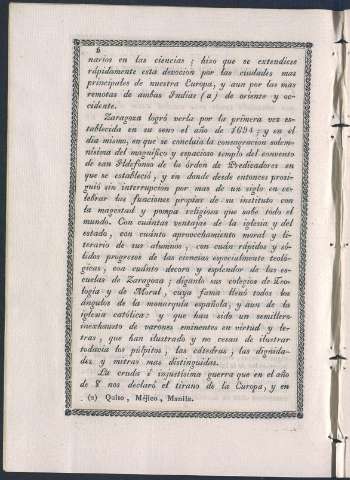 6
narios en las ciencias; hizo que se extendiese
rápidamente esta devocion por las ciudades mas
principales de nuestra Europa, y aun por las mas
remotas de ambas Indias (a) de oriente y oc-
cidente.
Zaragoza logró verla por la primera vez es-
tablecida en su seno el año de 1694; y en el
dia mismo, en que se concluia la consagracion solem-
nísima del magnífico y espacioso templo del convento
de san Ildefonso de la órden de Predicadores en
que se estableció, y en donde desde entonces prosi-
guió sin interrupcion por mas de un siglo en ce-
lebrar las funciones propias de su instituto con
la magestad y pompa religiosa que sabe todo el
mundo. Con cuántas ventajas de la iglesia y del
estado, con cuánto aprovechamiento moral y li-
terario de sus alumnos, con cuán rápidos y só-
lidos progresos de las ciencias especialmente teoló-
gicas, con cuánto decoro y esplendor de las es-
cuelas de Zaragoza; díganlo sus colegios de Teo-
logía y de Moral, cuya fama llenó todos los
ángulos de la monarquía española, y aun de la
iglesia católica: y que han sido un semillero
inexhausto de varones eminentes en virtud y le-
tras, que han ilustrado y no cesan de ilustrar
todavia los púlpitos, las cátedras, las dignida-
des y mitras mas distinguidas.
La cruda é injustísima guerra que en el año
de 8 nos declaró el tirano de la Europa, y en
(a) Quito, Méjico, Manila.